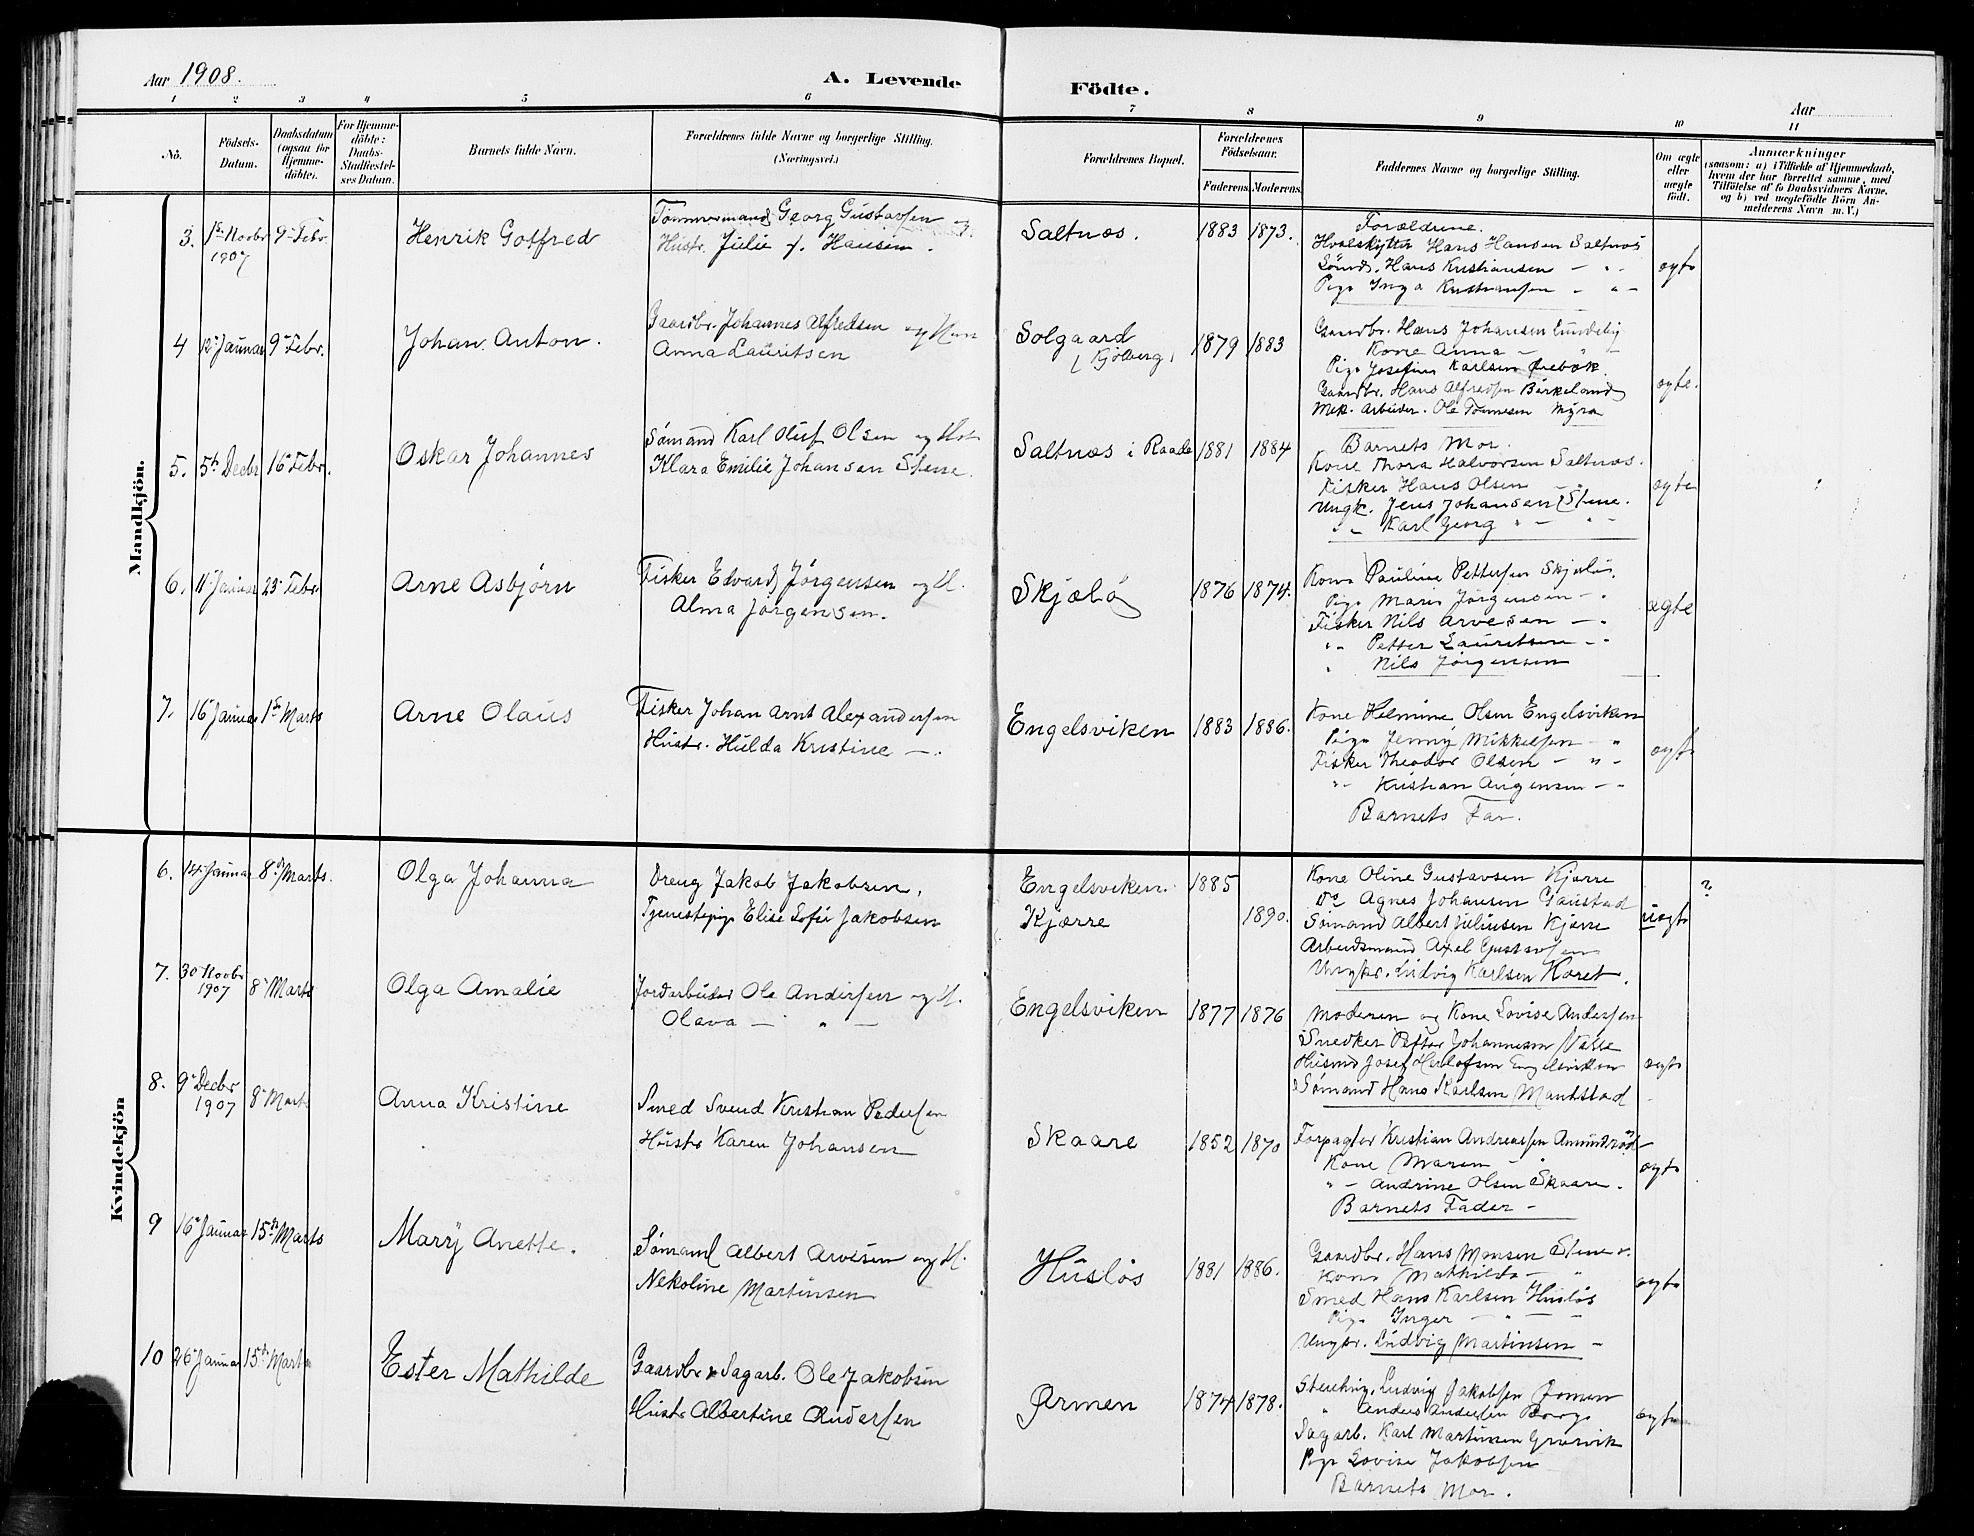 Aar 1908. A. Levende Födte. Aar
1 2 3 4 5 6 7 8 9 10 11
No.
Födsels-Datum.
Daabsdatum (ogsaa for Hjemme-döbte).
For Hjemme-döbte: Daabs-Stadfæstel-ses Datum.
Barnets fulde Navn.
Forældrenes fulde Navne og borgerlige Stilling. (Næringsvei.)
Forældrenes Bopæl.
Forældrenes Födselsaar.
Faderens. Moderens.
Faddernes Navne og borgerlige Stilling.
Om ægte eller uægte født.
Anmærkninger
(saasom: a) i Tilfælde af Hjemmedaab,
hvem der har forrettet samme, med
Tilföielse af to Daabsvidners Navne,
og b) ved uegtefödte Börn An-
melderens Navn m. V.)
Mandkjön.
3. 1ste Novbr 1907 9de Febr. Henrik Gotfred
Tømmermand Georg Gustavsen og
Hustr. Julie f. Hansen.
Saltnæs. 1883 1873.
Forældrene.
Hvalskytter Hans Hansen Saltnæs
Hans Kristiansen - " -
Pige Inga Kristiansen - " -
ægte
4 12 Januar 9de Febr. Johan Anton.
Gaardbr. Johannes Alfredsen og Hu
Anna Lauritsen
Solgaard
(Kjölberg) 1879 1883
Gaardbr. Hans Johansen Lundeby
Kone Anna - " -
Pige Josefine Karlsen Ørebæk.
Gaardbr. Hans Alfredsen Birkeland
Mek. Arbeider. Ole Tønnesen Myra
ægte.
5. 5te Decbr 16de Febr. Oskar Johannes
Sømand Karl Oluf Olsen og Hst
Klara Emilie Johansen Stene.
Saltnæs i Raade 1881 1884
Barnets Mor.
Kone Thora Halvorsen Saltnæs.
Fisker Hans Olsen - " -
Ungk. Jens Johansen Stene.
" - Karl Georg " - " -
ægte
6. 11 Januar 23de Febr. Arne Asbjørn
Fisker Edvard Jørgensen og H.
Alma Jørgensen.
Skjælø 1876 1874.
Kone Pauline Pettersen Skjælø.
Pige Marie Jørgensen - "
Fisker Nils Arvesen - "
" - Petter Lauritsen - "
" Nils Jørgensen
ægte
7. 16 Januar 1ste Marts Arne Olaus
Fisker Johan Arnt Alexandersen
Hustr. Hulda Kristine - "
Engelsviken 1883 1886.
Kone Helmine Olsen Engelsviken
Pige Jenny Mikkelsen - "
Fisker Theodor Olsen - " -
" - Kristian Jørgensen - "
Barnets Far.
ægte
Kvindekjön
6. 14 Januar 8de Marts. Olga Johanna
Dreng Jakob Jakobsen,
Tjenestepige Elise Sofie Jakobsen
Engelsviken. 1885
Kjærre 1890.
Kone Oline Gustavsen Kjærre
Do Agnes Johansen Gaustad
Sømand Albert Juliusen Kjærre
Arbeidsmand Axel Gustavsen
Ungkr. Ludvig Karlsen Karet.
uægte ?
7. 30 Novbr 1907 8de Marts Olga Amalie
Jordarbeider Ole Andersen og H.
Olava - " -
Engelsviken 1877 1876
Moderen og Kone Lovise Andersen
Snedker Petter Johannesen Valle
Husmd Josef Herlofsen Engelsviken
Sømand Hans Karlsen Mantstad
ægte
8. 9de Decbr 1907 8de Marts Anna Kristine
Smed Svend Kristian Pedersen
Hustr Karen Johansen
Skaare 1852 1870
Forpagter Kristian Andreassen Amundrød
Kone Maren -
" - Andrine Olsen Skaare.
Barnets Fader -
ægte
9 16 Januar 15de Marts Mary Anette.
Sømand Albert Arvesen og H.
Nekoline Martinsen
Husløs 1881 1886.
Gaardbr. Hans Monsen Stene
Kone Mathilde - "
Smed Hans Karlsen Husløs
Pige Inger - " -
Ungkr. Ludvig Martinsen -
ægte
10 26 Januar 15de Marts Ester Mathilde
Gaardbr & Sagarb. Ole Jakobsen
Hustr Albertine Andersen
Ørmen 1874 1878.
Stenhug. Ludvig Jakobsen Ørmen
" Anders Andersen Borge
Sagarb. Karl Martinsen
Pige Lovise Jakobsen
Barnets Mor.
ægte